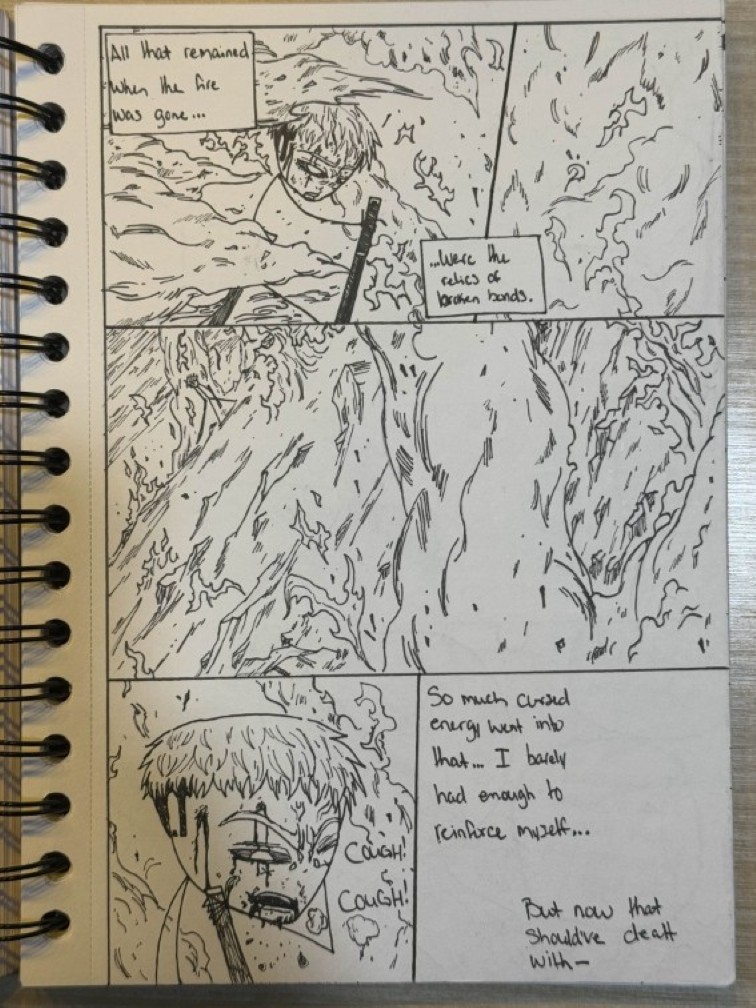 All that remained
When the fire
was gone...
...Were the
relics of
broken bonds.
COUGH!
COUGH!
So much cursed
energy went into
that... I barely
had enough to
reinforce myself...
But now that
should've dealt
with—